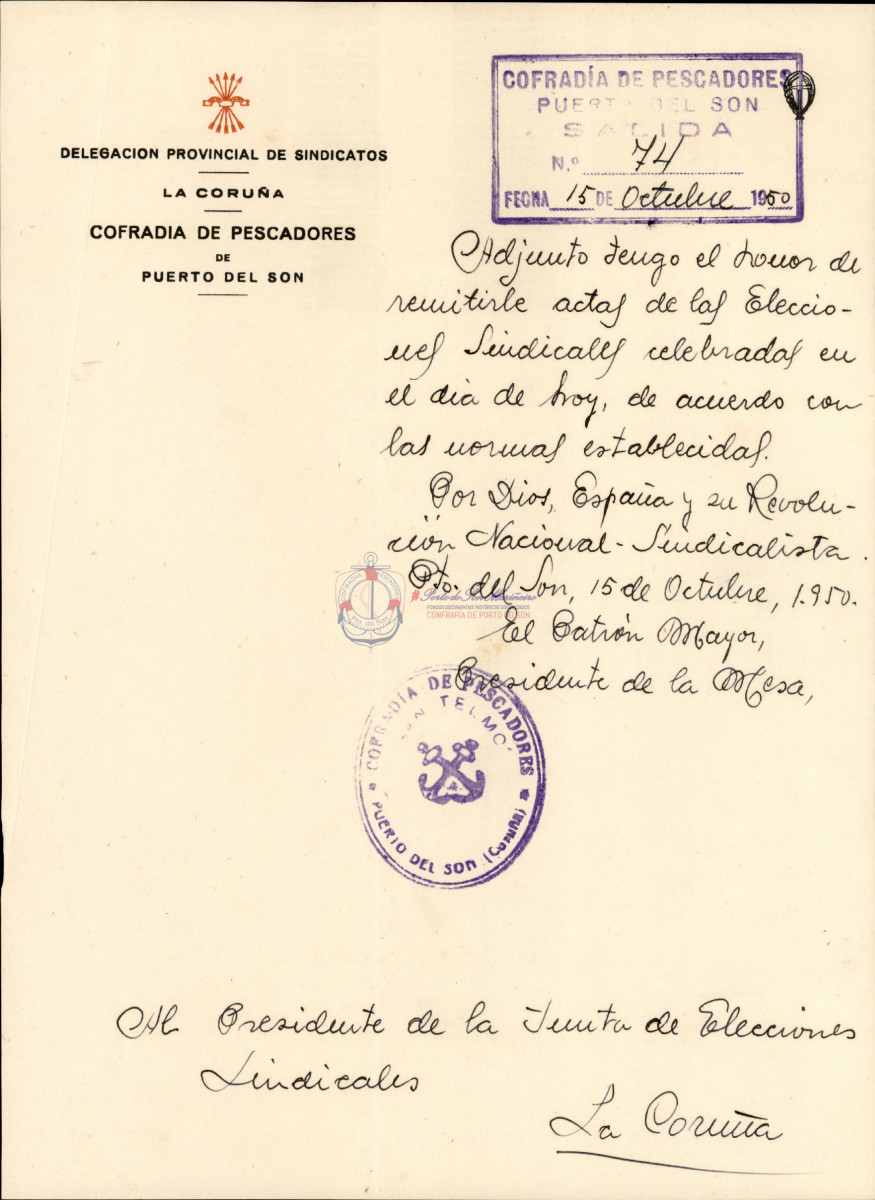 DELEGACION PROVINCIAL DE SINDICATOS
LA CORUÑA
COFRADIA DE PESCADORES
DE
PUERTO DEL SON
COFRADÍA DE PESCADORES
PUERTO DEL SON
SALIDA
N.º 74
FECHA 15 DE Octubre 1950
Adjunto tengo el honor de
remitirle actas de las Eleccio-
nes Sindicales celebradas en
el dia de hoy, de acuerdo con
las normas establecidas.
Por Dios, España y su Revolu-
ción Nacional-Sindicalista.
Pto. del Son, 15 de Octubre, 1.950.
El Patrón Mayor,
Presidente de la Mesa,
COFRADÍA DE PESCADORES
SAN TELMO
PUERTO DEL SON (Coruña)
COFRADIA PESCADORES
Pto. do Son
#Porto do Son Mariñeiro
FONDOS DOCUMENTAIS HISTÓRICOS
CONFRARÍA DE PORTO DO SON
Al Presidente de la Junta de Elecciones
Sindicales
La Coruña